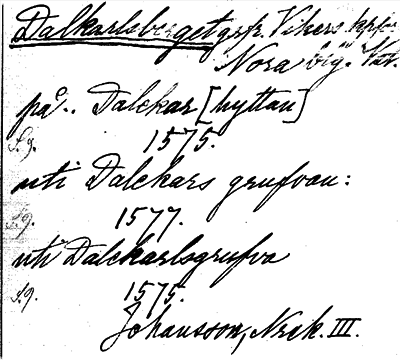 Dalkarlsberget grp. Vikers kpf.
Nora bg. Väst.
på.. Dalckar [hyttan]
S. 9. 1575.
uti Dalckars grufvan:
S. 9. 1577.
uti Dalckarlsgrufva
S. 9. 1575.
Johansson, Nrck. III.